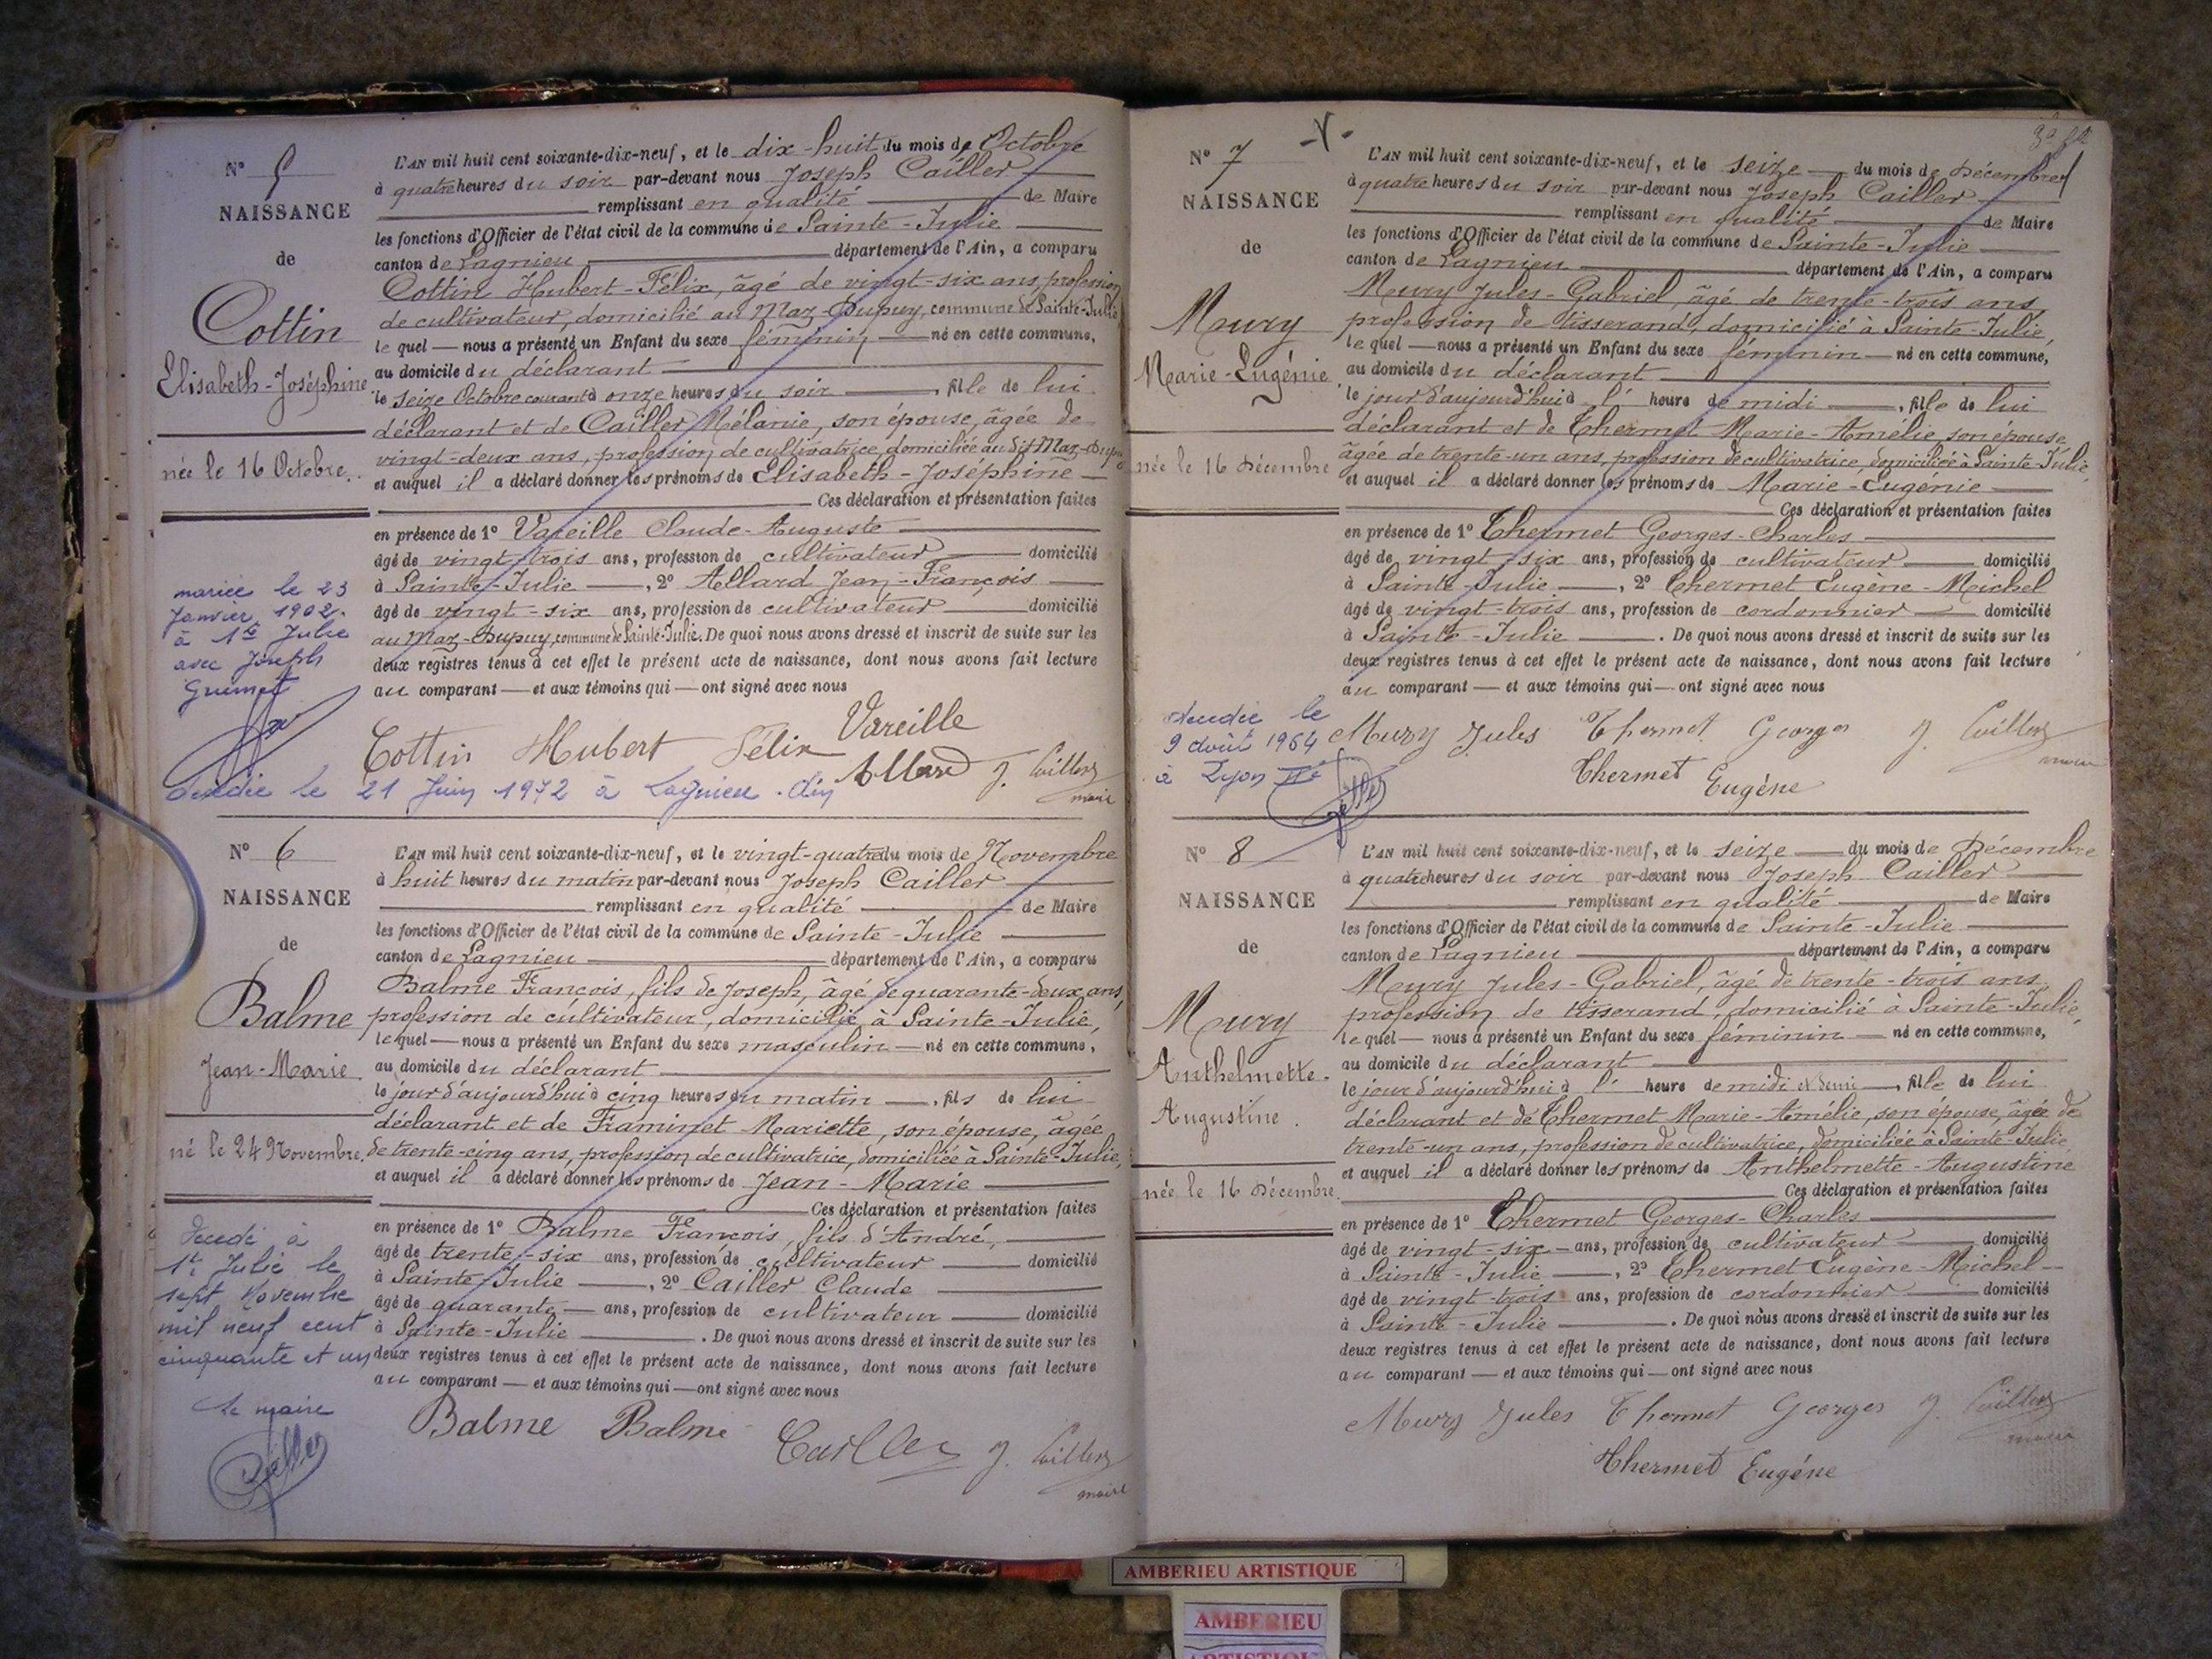 N° 5
NAISSANCE
de
Cottin
Elisabeth-Joséphine
née le 16 Octobre.
mariée le 23
Janvier 1902.
à Ste Julie
avec Joseph
Guimet
L'AN mil huit cent soixante-dix-neuf, et le dix-huit du mois de Octobre
à quatre heures du soir par-devant nous Joseph Cailler
remplissant en qualité de Maire
les fonctions d'Officier de l'état civil de la commune de Sainte-Julie
canton de Lagnieu département de l'Ain, a comparu
Cottin Hubert-Félix, âgé de vingt-six ans, profession
de cultivateur, domicilié au Maz-Dupuy, commune de Sainte-Julie
lequel — nous a présenté un Enfant du sexe féminin — né en cette commune,
au domicile du déclarant
le seize Octobre courant à onze heures du soir, fille de lui
déclarant et de Cailler Mélanie, son épouse, âgée de
vingt-deux ans, profession de cultivatrice, domiciliée au dit Maz-Dupuy
et auquel il a déclaré donner les prénoms de Elisabeth-Joséphine
Ces déclaration et présentation faites
en présence de 1° Vareille Claude-Auguste
âgé de vingt-trois ans, profession de cultivateur domicilié
à Sainte-Julie, 2° Allard Jean-François
âgé de vingt-six ans, profession de cultivateur domicilié
au Maz-Dupuy, commune de Sainte-Julie. De quoi nous avons dressé et inscrit de suite sur les
deux registres tenus à cet effet le présent acte de naissance, dont nous avons fait lecture
au comparant — et aux témoins qui — ont signé avec nous
Cottin Hubert Félix Vareille
Allard J. Cailler
maire
décédée le 21 Juin 1972 à Lagnieu
N° 6
NAISSANCE
de
Balme
Jean-Marie
né le 24 Novembre.
Décédé à
Ste Julie le
sept Novembre
mil neuf cent
cinquante et un
Le maire
L'AN mil huit cent soixante-dix-neuf, et le vingt-quatre du mois de Novembre
à huit heures du matin par-devant nous Joseph Cailler
remplissant en qualité de Maire
les fonctions d'Officier de l'état civil de la commune de Sainte-Julie
canton de Lagnieu département de l'Ain, a comparu
Balme François, fils de Joseph, âgé de quarante-deux ans,
profession de cultivateur, domicilié à Sainte-Julie,
lequel — nous a présenté un Enfant du sexe masculin — né en cette commune,
au domicile du déclarant
le jour d'aujourd'hui à cinq heures du matin, fils de lui
déclarant et de Framinet Mariette, son épouse, âgée
de trente-cinq ans, profession de cultivatrice, domiciliée à Sainte-Julie,
et auquel il a déclaré donner les prénoms de Jean-Marie
Ces déclaration et présentation faites
en présence de 1° Balme François, fils d'André,
âgé de trente-six ans, profession de cultivateur domicilié
à Sainte-Julie, 2° Cailler Claude
âgé de quarante — ans, profession de cultivateur domicilié
à Sainte-Julie. De quoi nous avons dressé et inscrit de suite sur les
deux registres tenus à cet effet le présent acte de naissance, dont nous avons fait lecture
au comparant — et aux témoins qui — ont signé avec nous
Balme Balme Cailler J. Cailler
maire
N° 7
NAISSANCE
de
Mury
Marie-Eugénie
née le 16 Décembre
décédée le
9 août 1964
à Lyon
L'AN mil huit cent soixante-dix-neuf, et le seize du mois de Décembre
à quatre heures du soir par-devant nous Joseph Cailler
remplissant en qualité de Maire
les fonctions d'Officier de l'état civil de la commune de Sainte-Julie
canton de Lagnieu département de l'Ain, a comparu
Mury Jules-Gabriel, âgé de trente-trois ans,
profession de tisserand, domicilié à Sainte-Julie,
lequel — nous a présenté un Enfant du sexe féminin — né en cette commune,
au domicile du déclarant
le jour d'aujourd'hui à l' heure de midi, fille de lui
déclarant et de Thermet Marie-Amélie, son épouse,
âgée de trente-un ans, profession de cultivatrice, domiciliée à Sainte-Julie,
et auquel il a déclaré donner les prénoms de Marie-Eugénie
Ces déclaration et présentation faites
en présence de 1° Thermet Georges-Charles
âgé de vingt-six ans, profession de cultivateur domicilié
à Sainte-Julie, 2° Thermet Eugène-Michel
âgé de vingt-trois ans, profession de cordonnier domicilié
à Sainte-Julie. De quoi nous avons dressé et inscrit de suite sur les
deux registres tenus à cet effet le présent acte de naissance, dont nous avons fait lecture
au comparant — et aux témoins qui — ont signé avec nous
Mury Jules Thermet Georges J. Cailler
maire
Thermet Eugène
N° 8
NAISSANCE
de
Mury
Anthelmette-
Augustine.
née le 16 Décembre.
L'AN mil huit cent soixante-dix-neuf, et le seize du mois de Décembre
à quatre heures du soir par-devant nous Joseph Cailler
remplissant en qualité de Maire
les fonctions d'Officier de l'état civil de la commune de Sainte-Julie
canton de Lagnieu département de l'Ain, a comparu
Mury Jules-Gabriel, âgé de trente-trois ans,
profession de tisserand, domicilié à Sainte-Julie,
lequel — nous a présenté un Enfant du sexe féminin — né en cette commune,
au domicile du déclarant
le jour d'aujourd'hui à l' heure de midi et demi, fille de lui
déclarant et de Thermet Marie-Amélie, son épouse, âgée de
trente-un ans, profession de cultivatrice, domiciliée à Sainte-Julie
et auquel il a déclaré donner les prénoms de Anthelmette-Augustine
Ces déclaration et présentation faites
en présence de 1° Thermet Georges-Charles
âgé de vingt-six — ans, profession de cultivateur domicilié
à Sainte-Julie, 2° Thermet Eugène-Michel
âgé de vingt-trois ans, profession de cordonnier domicilié
à Sainte-Julie. De quoi nous avons dressé et inscrit de suite sur les
deux registres tenus à cet effet le présent acte de naissance, dont nous avons fait lecture
au comparant — et aux témoins qui — ont signé avec nous
Mury Jules Thermet Georges J. Cailler
maire
Thermet Eugéne
AMBERIEU ARTISTIQUE
AMBERIEU
ARTISTIQUE